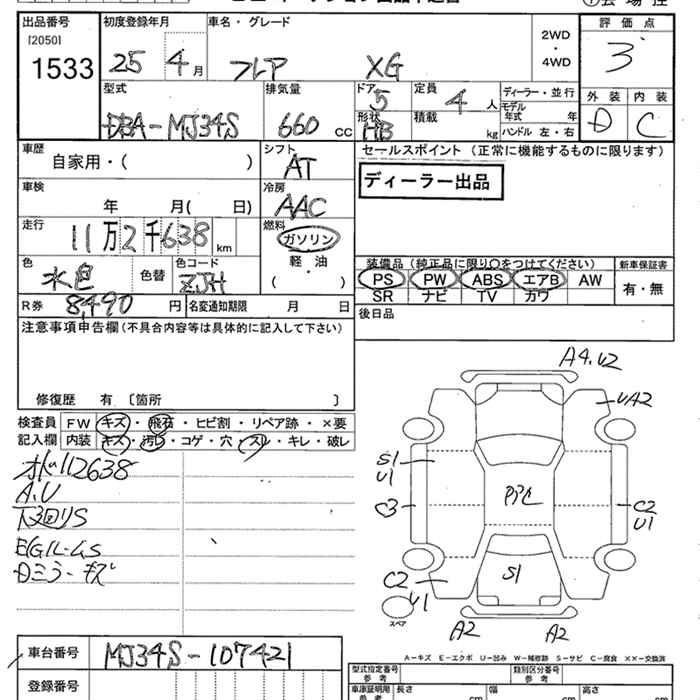 出品番号 初度登録年月 車名・グレード 評価点
[2050] 2WD
1533 25 年 4 月 フレア XG ・ 4WD 3
型式 排気量 ドア 5 定員 4 人 ディーラー・並行 外装 内装
DBA-MJ34S 660 cc 形状 HB 積載 kg モデル年式 年 D C
ハンドル 左・右
車歴 シフト セールスポイント(正常に機能するものに限ります)
自家用・( ) AT ディーラー出品
車検 冷房
年 月( 日) AAC
走行 燃料
11万2千638 km ガソリン
色 色コード 軽・油 装備品(純正品に限り○をつけてください) 新車保証書
水色 色替 ZJH ( ) PS PW ABS エアB AW 有・無
R券 8,490 円 名変通知期限 月 日 SR ナビ TV カワ
注意事項申告欄(不具合内容等は具体的に記入して下さい) 後日品
修復歴 有 〔箇所 〕
検査員 FW キズ・飛石・ヒビ割・リペア跡・×要
記入欄 内装 キズ・汚レ・コゲ・穴・スレ・キレ・破レ
A.U
下回りS
EGルームS
Dミラーキズ
A4.U2
UA2
S1
U1
C3
C2
U1
S1
C2
U1
スペア
A2 A2
A-キズ E-エクボ U-凹み W-補修跡 S-サビ C-腐食 ××-交換済
車台番号 MJ34S-107421
型式指定番号 参考 類別区分番号 参考
登録番号 車庫証明用 参考 長さ cm 幅 cm 高さ cm